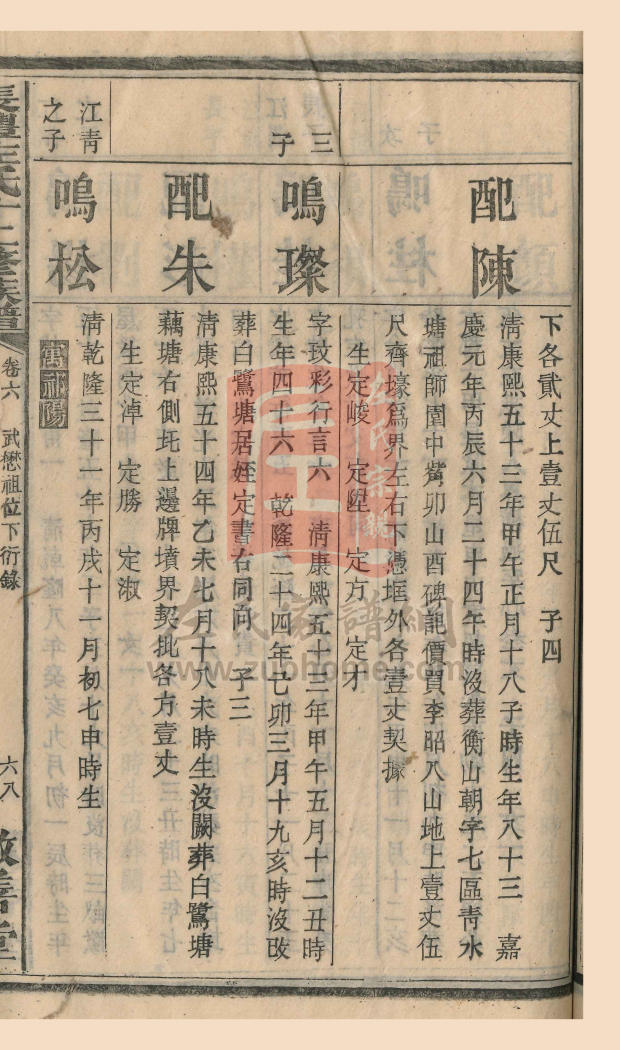 下各貳丈上壹丈伍尺　子四
配陳
清康熙五十三年甲午正月十八子時生年八十三　嘉
慶元年丙辰六月二十四午時沒葬衡山朝字七區靑水
塘祖師園中觜卯山酉碑訛價買李昭八山地上壹丈伍
尺齊壕爲界左右下憑塋外各壹丈契據
生定峻　定陞　定方　定才
三
子
鳴璨
字玟彩行言六　清康熙五十三年甲午五月十二丑時
生年四十六　乾隆二十四年己卯三月十九亥時沒改
葬白鷺塘居姪定書右同向　子三
配朱
清康熙五十四年乙未七月十八未時生沒闕葬白鷺塘
藕塘右側圫上邊牌墳界契批各方壹丈
生定淖　定勝　定淑
江靑
之子
鳴松
清乾隆三十一年丙戌十一月初七申時生
寓祁陽
氏十二修族譜
卷六　武懋祖位下衍錄
六八
敬善堂
www.zuphome.com